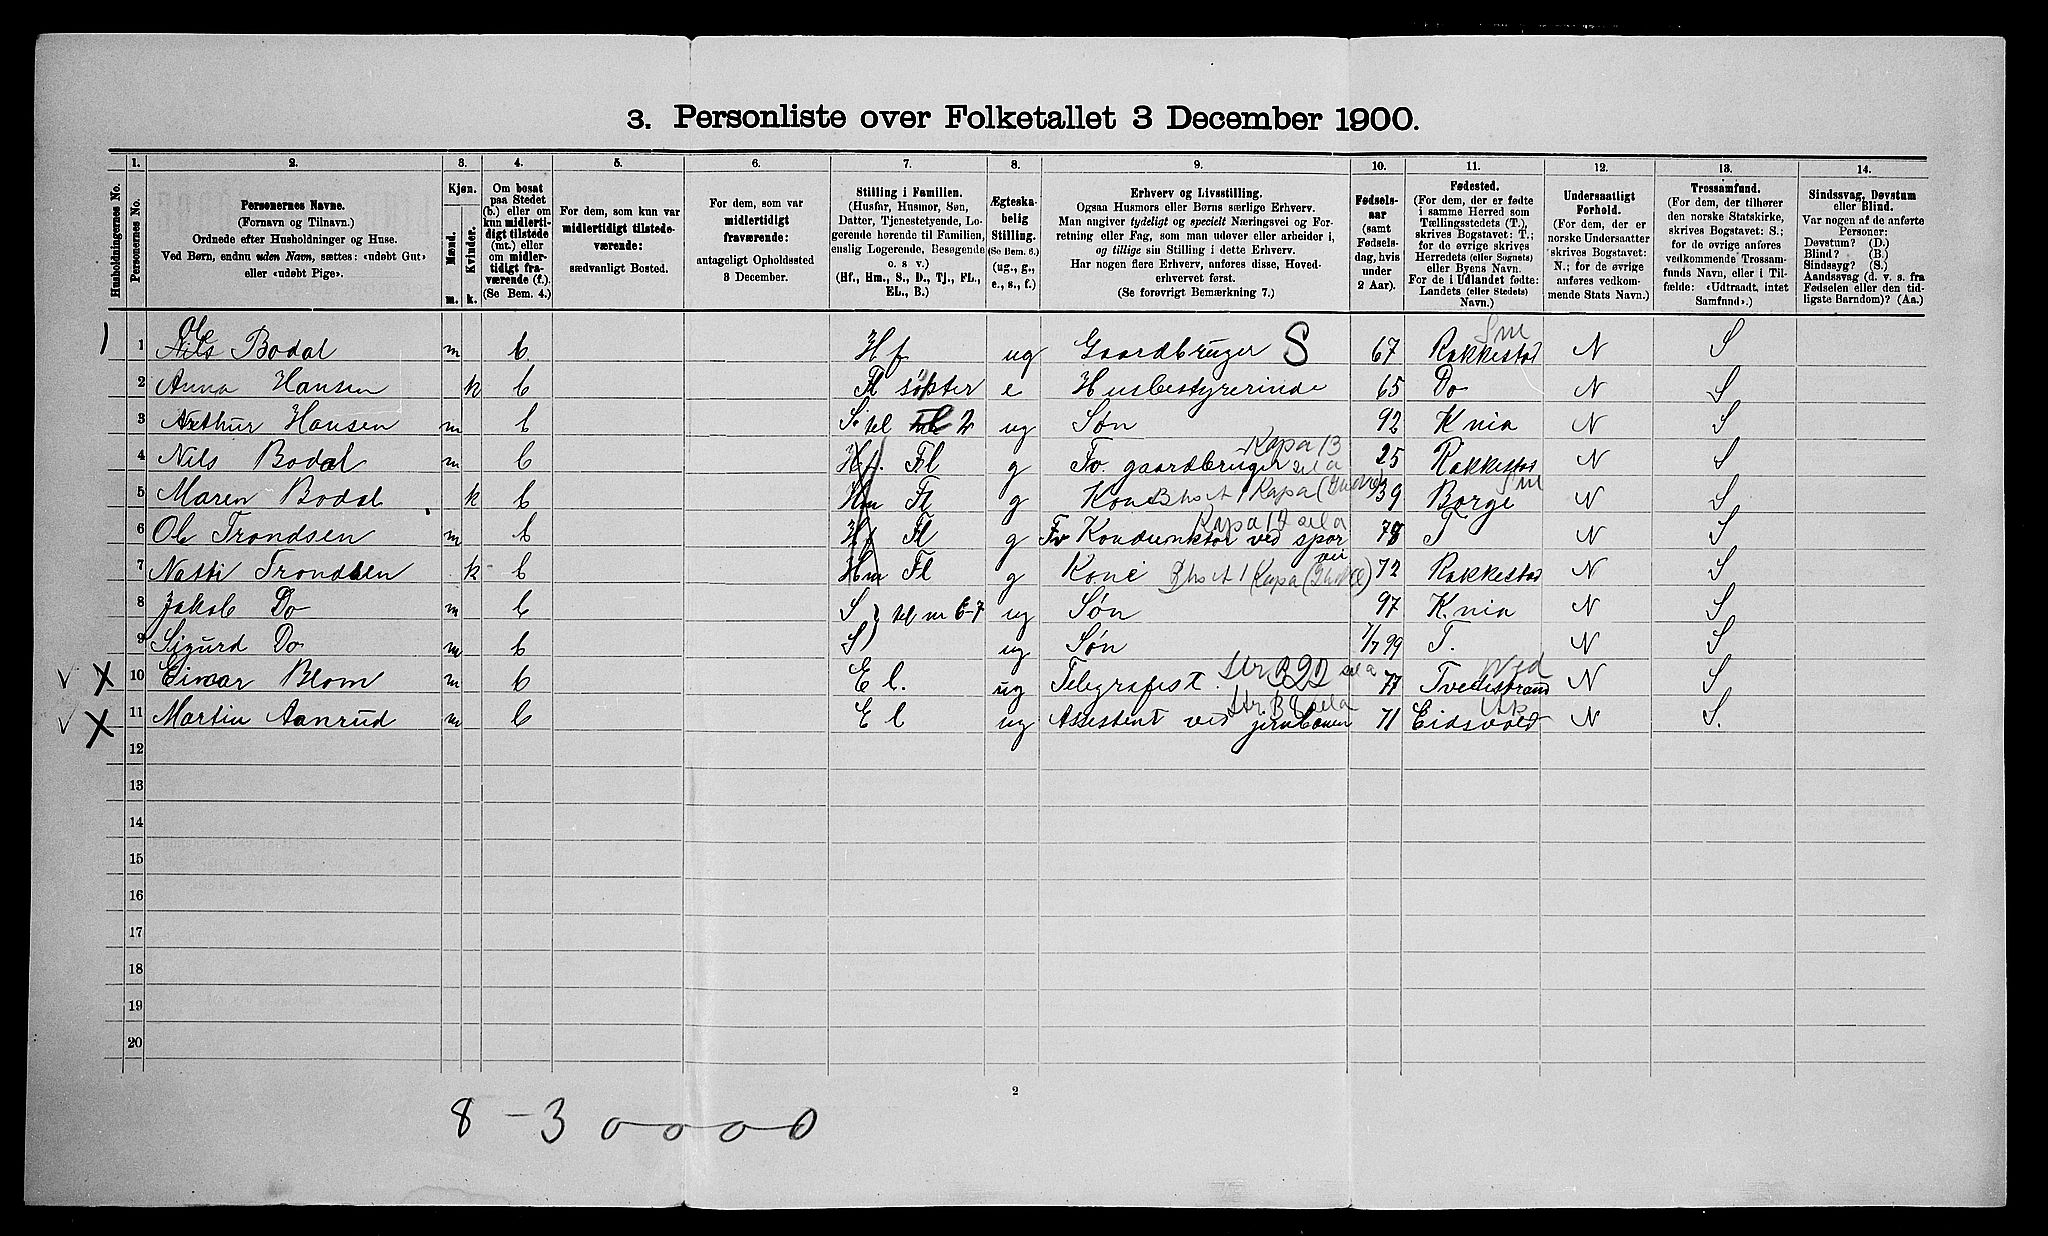 3. Personliste over Folketallet 3 December 1900.
1. 2. 3. 4. 5. 6. 7. 8. 9. 10. 11. 12. 13. 14.
Husholdningernes No.
Personernes No.
Personernes Navne.
(Fornavn og Tilnavn.)
Ordnede efter Husholdninger og Huse.
Ved Børn, endnu uden Navn, sættes: «udøbt Gut»
eller «udøbt Pige».
Kjøn.
Mænd.
Kvinder.
m. k.
Om bosat
paa Stedet
(b.) eller om
kun midlerti-
digt tilstede
(mt.) eller
om midler-
tidigt fra-
værende (f.).
(Se Bem. 4.)
For dem, som kun var
midlertidigt tilstede-
værende:
sædvanligt Bosted.
For dem, som var
midlertidigt
fraværende:
antageligt Opholdssted
3 December.
Stilling i Familien.
(Husfar, Husmor, Søn,
Datter, Tjenestetyende, Lo-
gerende hørende til Familien,
enslig Logerende, Besøgende
o. s v.)
(Hf., Hm., S., D., Tj., FL.,
EL., B.)
Ægteska-
belig
Stilling.
(Se Bem. 6.)
(ug., g.,
e., s., f.)
Erhverv og Livsstilling.
Ogsaa Husmors eller Børns særlige Erhverv.
Man angiver tydeligt og specielt Næringsvei og For-
retning eller Fag, som man udøver eller arbeider i,
og tillige sin Stilling i dette Erhverv.
Har nogen flere Erhverv, anføres disse, Hoved-
erhvervet først.
(Se forøvrigt Bemærkning 7.)
Fødsels-
aar
(samt
Fødsels-
dag, hvis
under
2 Aar).
Fødested.
(For dem, der er fødte
i samme Herred som
Tællingsstedets (T.),
skrives Bogstavet: T.;
for de øvrige skrives
Herredets (eller Sognets)
eller Byens Navn.
For de i Udlandet fødte:
Landets (eller Stedets)
Navn.)
Undersaatligt
Forhold.
(For dem, der er
norske Undersaatter
skrives Bogstavet:
N.; for de øvrige
anføres vedkom-
mende Stats Navn.)
Trossamfund.
(For dem, der tilhører
den norske Statskirke,
skrives Bogstavet: S.;
for de øvrige anføres
vedkommende Trossam-
funds Navn, eller i Til-
fælde: «Udtraadt, intet
Samfund».)
Sindssvag, Døvstum
eller Blind.
Var nogen af de anførte
Personer:
Døvstum? (D.)
Blind? (B.)
Sindssyg? (S.)
Aandssvag (d. v. s. fra
Fødselen eller den tid-
ligste Barndom)? (Aa.)
Sm
1 Ole Nils Bodal m b Hf ug Gaardbruger S 67 Rakkestad N S
2 Anna Hansen k b Fl søster e Husbestyrerinde 65 Do N S
3 Arthur Hansen m b S. til 2 ug Søn 92 K.nia N S
Kapa 13
4 Nils Bodal m b Hf. Fl g Fv. gaardbruger sel a 25 Rakkestad N S
Sm
5 Maren Bodal k b Hm Fl g Kone 39 Borge N S
6 Ole Trondsen m b Hf Fl g Fv Konduktør ved spor 78 T N S
vei
7 Natti Trondsen k b Hm Fl g Kone 72 Rakkestad N S
8 Jakob Do m b S til nr 6-7 ug Søn 97 K.nia N S
9 Sigurd Do m b S ug Søn 1/7 99 T. N S
Ned
√ X 10 Einar Blom m b El. ug Telegrafist. 77 Tvedestrand N S
√ X 11 Martin Aanrud m b El ug Assistent ved jernbanen 71 Eidsvold N S.
12
13
14
15
16
17
18
19
20
2
8 - 3 0 0 0 0